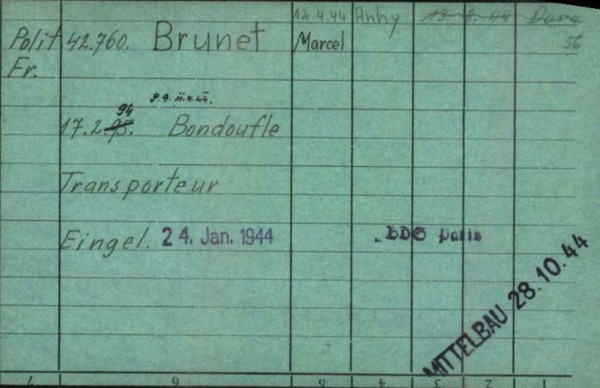 12.4.44 Anhy 13.9.44 Dora
Polit. 42.760. Brunet Marcel 56
Fr.
94
17.2.95. Bondoufle
Transporteur
Eingel. 24. Jan. 1944 BDS Paris
MITTELBAU 28.10.44
7 6 5 4 3 2 1